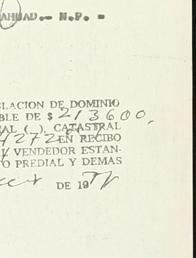 AHUAD.- N.P. -
SLACION DE DOMINIO
BLE DE $ 213600,
AL (_), CATASTRAL
EN RECIBO
VENDEDOR ESTAN-
O PREDIAL Y DEMAS
DE 19